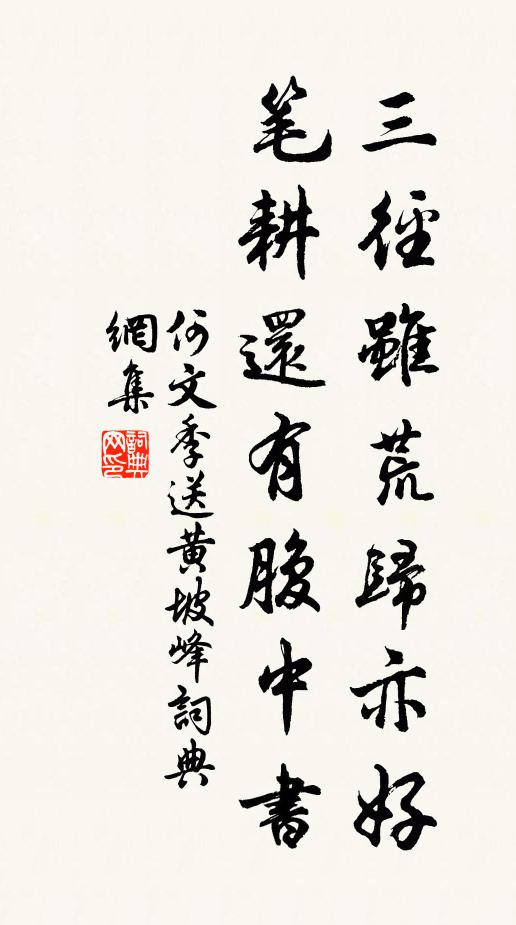 三徑雖荒歸亦好
笔耕還有腹中書
何文季送黄坡峰詞典
網集
詞典
网印